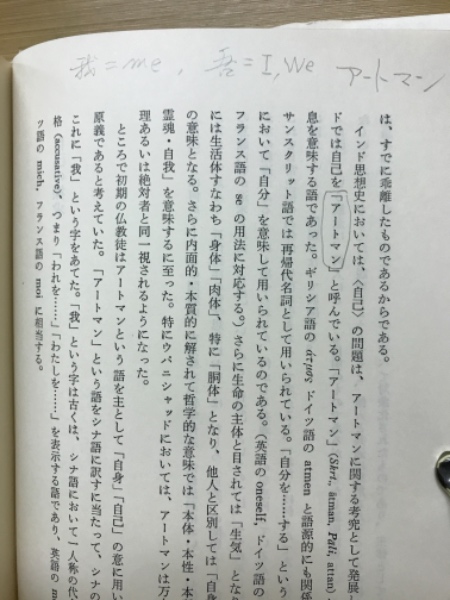 我=me, 吾=I, We アートマン
は、すでに乖離したものであるからである。
インド思想史においては、〈自己〉の問題は、アートマンに関する考究として発展
ドでは自己を「アートマン」と呼んでいる。「アートマン」(Skrt., ātman, Pali, attan)
息を意味する語であった。ギリシア語の ἀτμός ドイツ語の atmen と語源的にも関係
サンスクリット語では再帰代名詞として用いられている。「自分を……する」という
において「自分」を意味して用いられているのである。(英語の oneself, ドイツ語の
フランス語の se の用法に対応する。)さらに生命の主体と目されては「生気」とな
には生活体すなわち「身体」「肉体」、特に「胴体」となり、他人と区別しては「自
の意味となる。さらに内面的・本質的に解されて哲学的な意味では「本体・本性・本
霊魂・自我」を意味するに至った。特にウパニシャッドにおいては、アートマンは万
理あるいは絶対者と同一視されるようになった。
ところで初期の仏教徒はアートマンという語を主として「自身」「自己」の意に用い
原義であると考えていた。「アートマン」という語をシナ語に訳すに当たって、シナの
これに「我」という字をあてた。「我」という字は古くは、シナ語において「人称の代
格(accusative)、つまり「われを……」「わたしを……」を表示する語であり、英語の m
ツ語の mich, フランス語の moi に相当する。